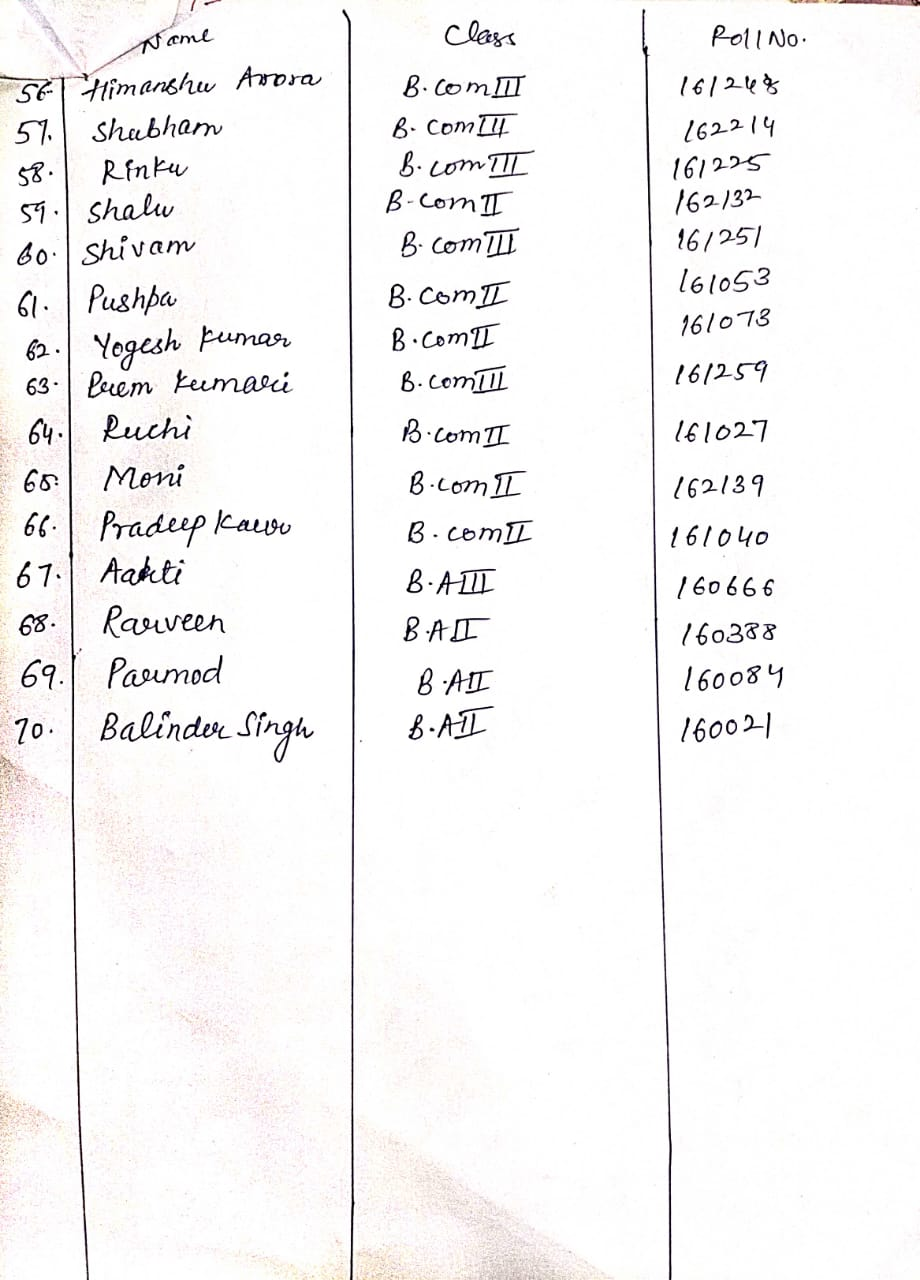 Name Class Roll No.
56. Himanshu Arora B.com III 161248
57. Shubham B.com III 162214
58. Rinku B.com III 161225
59. Shalu B-com II 162132
60. Shivam B.com III 161251
61. Pushpa B.com II 161053
62. Yogesh Kumar B.com II 161073
63. Prem Kumari B.com III 161259
64. Ruchi B.com II 161027
65. Moni B.com II 162139
66. Pradeep Kaur B.com II 161040
67. Aakti B.A III 160666
68. Parveen B.A II 160388
69. Parmod B.A II 160084
70. Balinder Singh B.A II 160021